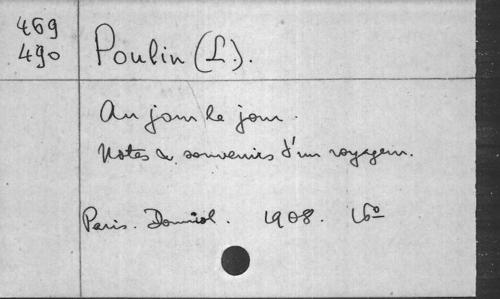 469
490
Poulin (L.).
Au jour le jour.
Notes & souvenirs d'un voyageur.
Paris. Douniol. 1908. 16º